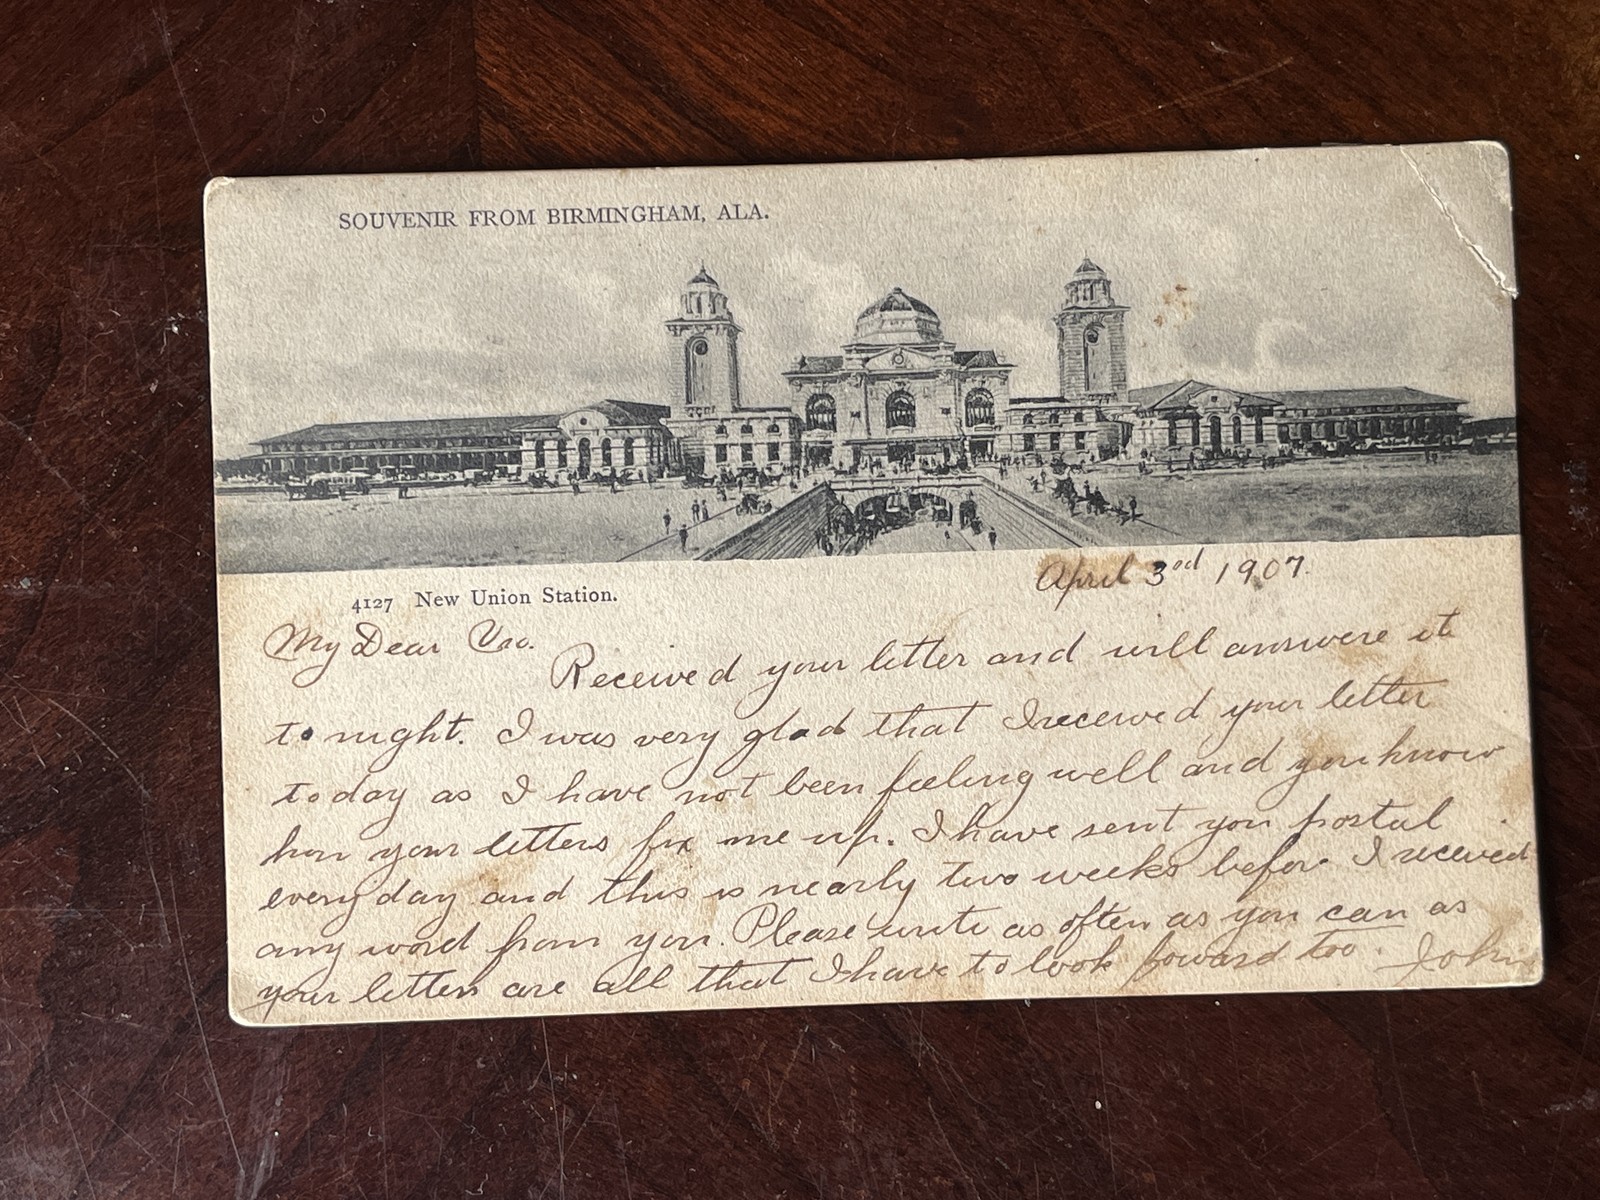 SOUVENIR FROM BIRMINGHAM, ALA.
4127 New Union Station.
April 3rd 1907.
My Dear
Received your letter and will answere it
to night. I was very glad that I received your letter
today as I have not been feeling well and you know
how your letters fix me up. I have sent you postal
every day and this is nearly two weeks before I received
any word from you. Please write as often as you can as
your letters are all that I have to look foward too. John